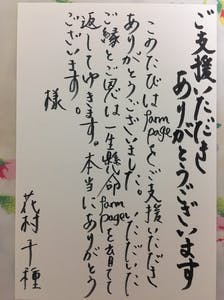 ご支援いただき
ありがとうございます
このたびはfarm
pageをご支援いただき
ありがとうございました。いただいた
ご縁とご恩は一生懸命
farm pageを育てて
返してゆきます。本当にありがとう
ございます。
様
花村千種